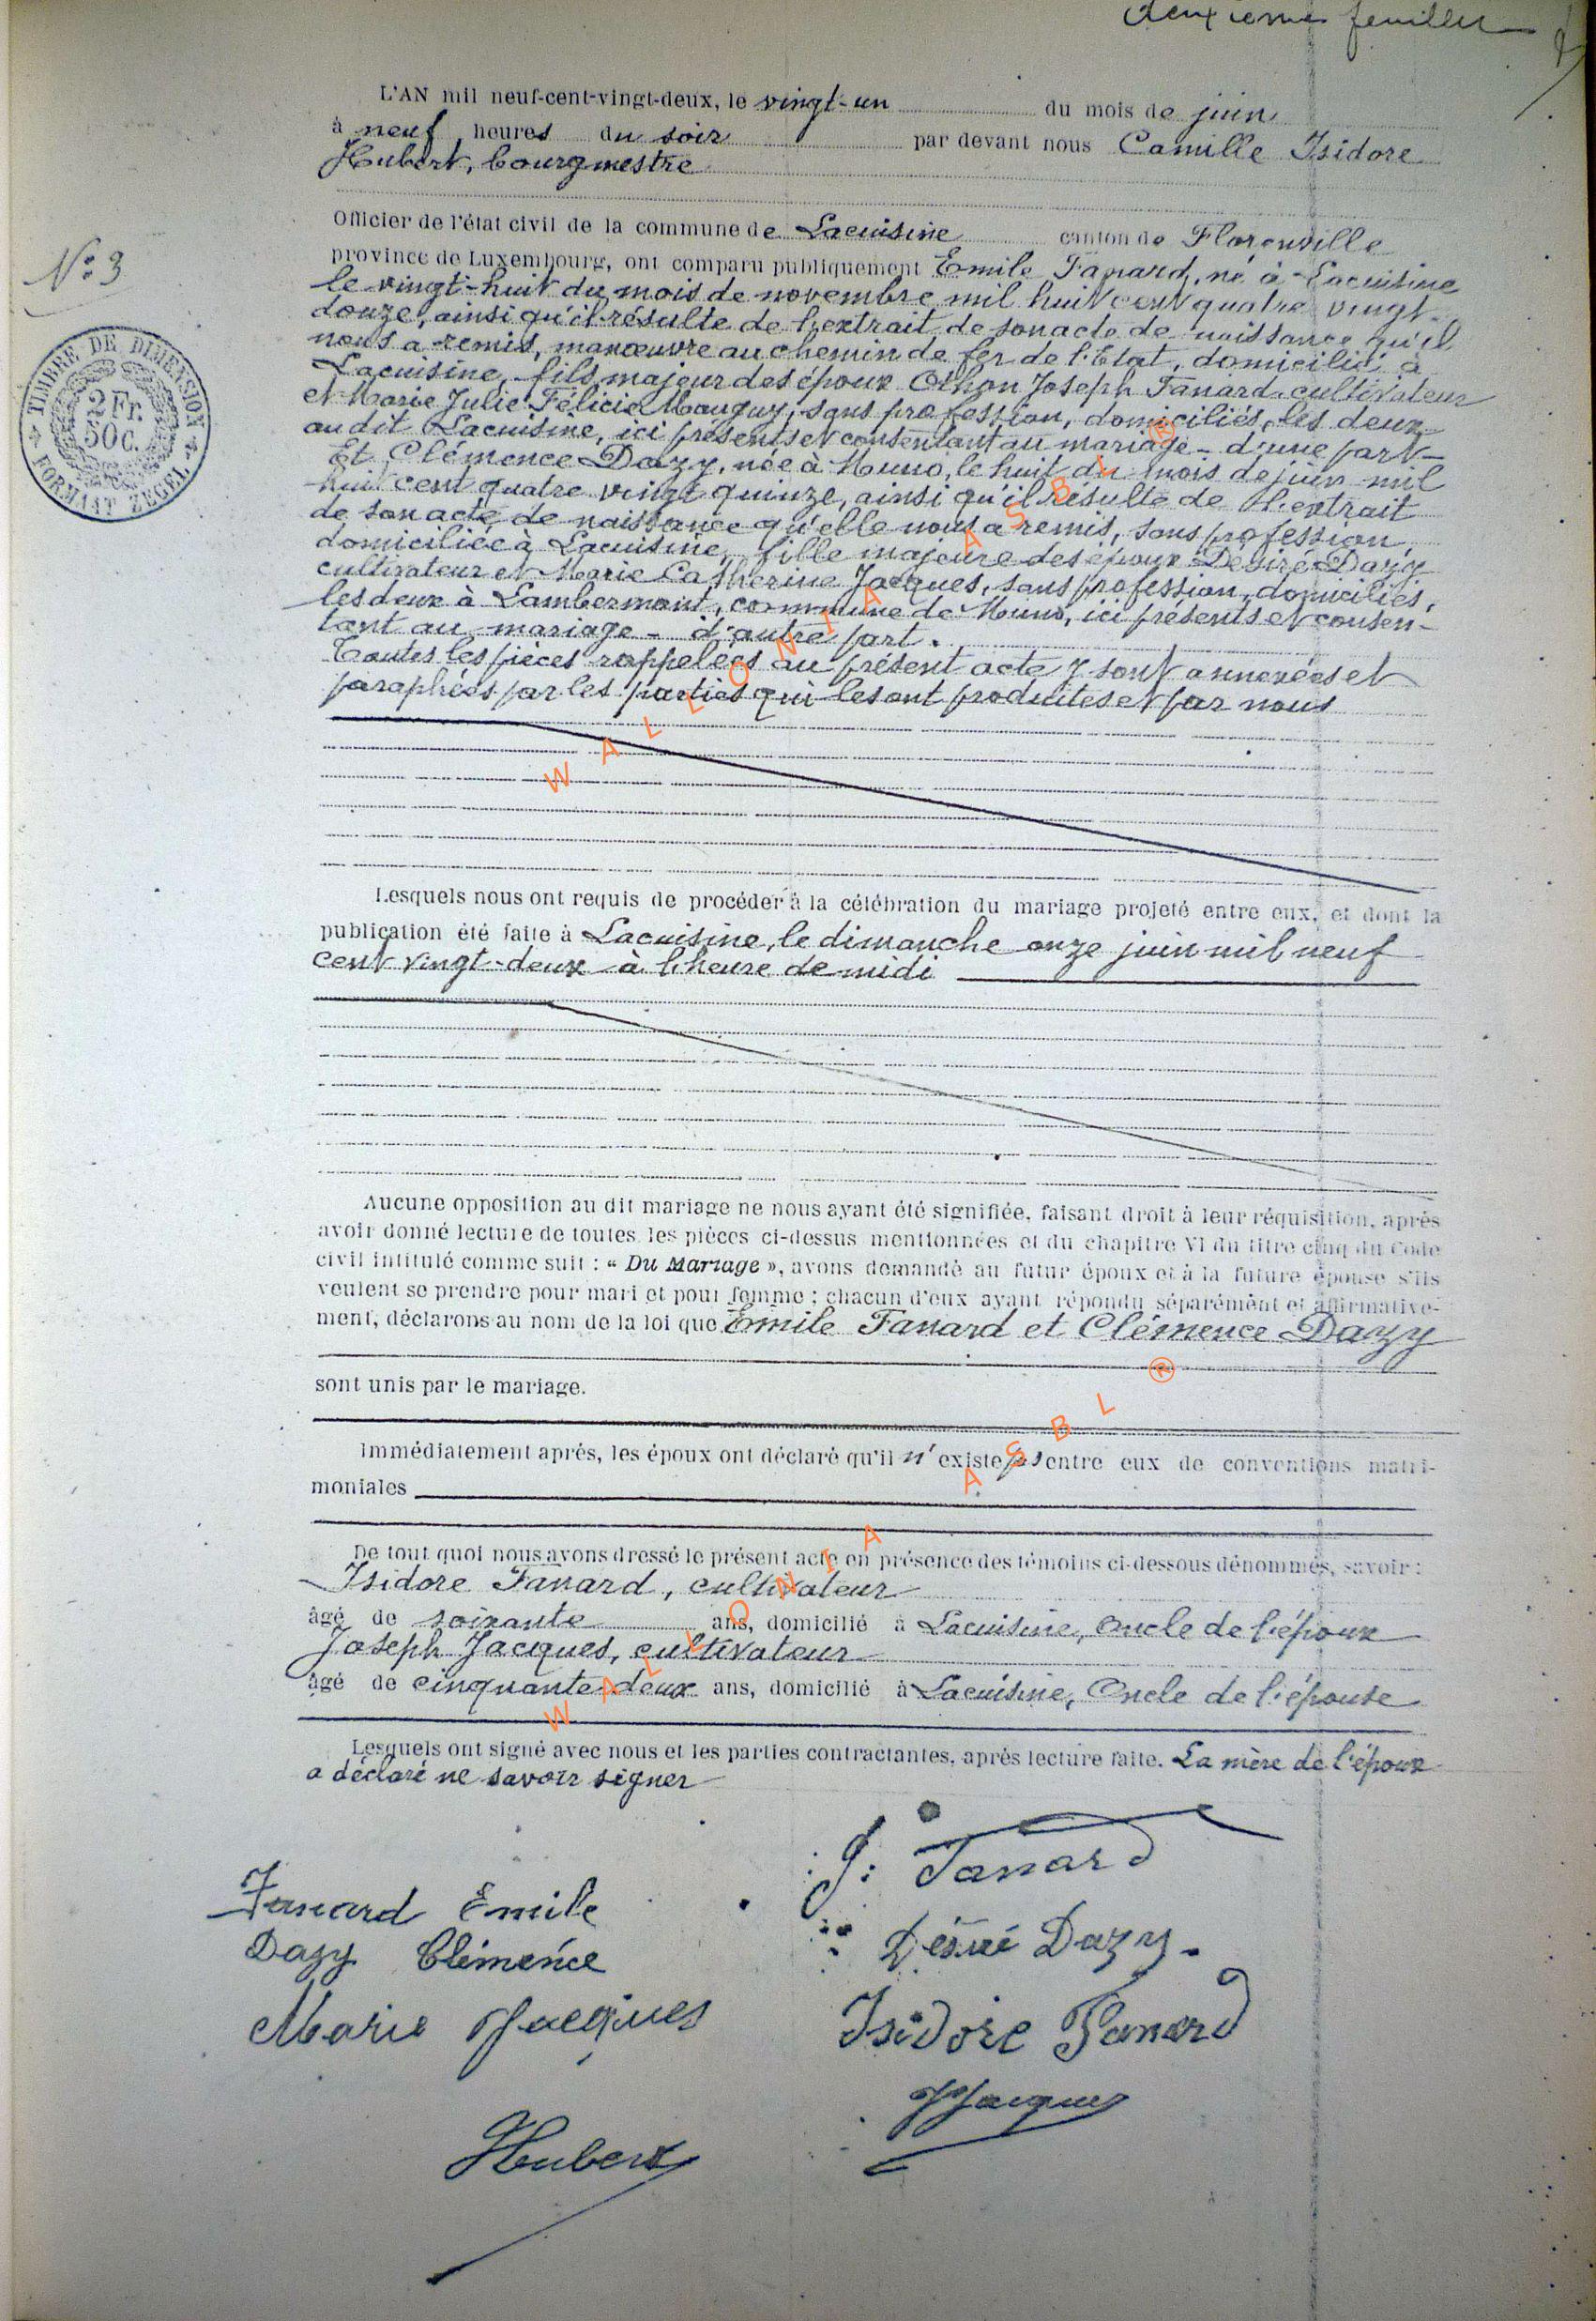 deuxième feuillet
L'AN mil neuf-cent-vingt-deux, le vingt-un du mois de juin
à neuf heures du soir par devant nous Camille Isidore
Hubert, bourgmestre
Officier de l'état civil de la commune de Lacuisine canton de Florenville
province de Luxembourg, ont comparu publiquement Emile Fanard, né à Lacuisine
N° 3
le vingt-huit du mois de novembre mil huit cent quatre vingt
douze, ainsi qu'il résulte de l'extrait de son acte de naissance qu'il
nous a remis, manœuvre au chemin de fer de l'Etat, domicilié à
Lacuisine, fils majeur des époux Othon Joseph Fanard, cultivateur
et Marie Julie Félicie Mauguy, sans profession, domiciliés, les deux
au dit Lacuisine, ici présents et consentant au mariage - d'une part -
Et Clémence Dazy, née à Muno, le huit du mois de juin mil
huit cent quatre vingt quinze, ainsi qu'il résulte de l'extrait
de son acte de naissance qu'elle nous a remis, sans profession,
domiciliée à Lacuisine, fille majeure des époux Désiré Dazy
cultivateur et Marie Catherine Jacques, sans profession, domiciliés,
les deux à Lambermont, commune de Muno, ici présents et consen-
tant au mariage - d'autre part.
Toutes les pièces rappelées au présent acte y sont annexées et
paraphées par les parties qui les ont produites et par nous
TIMBRE DE DIMENSION
2 Fr.
50c.
FORMAAT ZEGEL
Lesquels nous ont requis de procéder à la célébration du mariage projeté entre eux, et dont la
publication été faite à Lacuisine, le dimanche onze juin mil neuf
cent vingt-deux à l'heure de midi
Aucune opposition au dit mariage ne nous ayant été signifiée, faisant droit à leur réquisition, après
avoir donné lecture de toutes les pièces ci-dessus mentionnées et du chapitre VI du titre cinq du Code
civil intitulé comme suit : « Du Mariage », avons demandé au futur époux et à la future épouse s'ils
veulent se prendre pour mari et pour femme ; chacun d'eux ayant répondu séparément et affirmative-
ment, déclarons au nom de la loi que Emile Fanard et Clémence Dazy
sont unis par le mariage.
Immédiatement après, les époux ont déclaré qu'il n'existe pas entre eux de conventions matri-
moniales
De tout quoi nous avons dressé le présent acte en présence des témoins ci-dessous dénommés, savoir :
Isidore Fanard, cultivateur
âgé de soixante ans, domicilié à Lacuisine, Oncle de l'époux
Joseph Jacques, cultivateur
âgé de cinquante-deux ans, domicilié à Lacuisine, Oncle de l'épouse
Lesquels ont signé avec nous et les parties contractantes, après lecture faite. La mère de l'époux
a déclaré ne savoir signer
J: Fanard
Fanard Emile
Désiré Dazy.
Dazy Clémence
Marie Jacques
Isidore Fanard
JJacques
Hubert
WALLONIA ASBL ®
WALLONIA ASBL ®